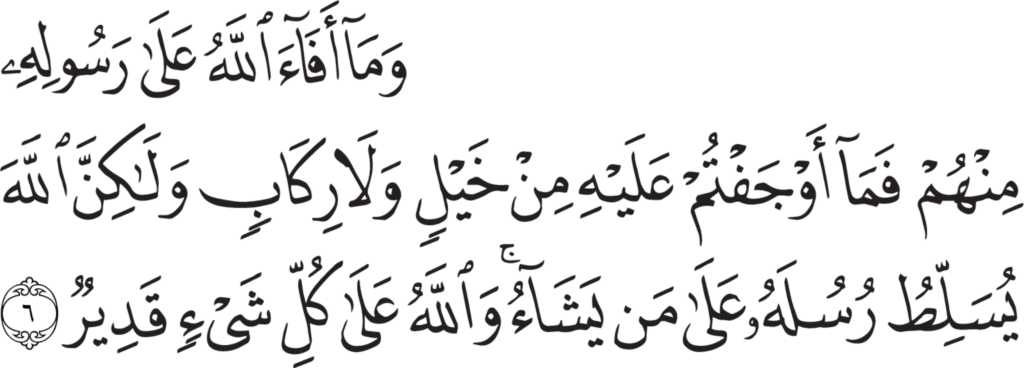 وَمَآ أَفَآءَ ٱللَّهُ عَلَىٰ رَسُولِهِۦ
مِنْهُمْ فَمَآ أَوْجَفْتُمْ عَلَيْهِ مِنْ خَيْلٍ وَلَا رِكَابٍ وَلَـٰكِنَّ ٱللَّهَ
يُسَلِّطُ رُسُلَهُۥ عَلَىٰ مَن يَشَآءُ ۚ وَٱللَّهُ عَلَىٰ كُلِّ شَىْءٍ قَدِيرٌ ٦